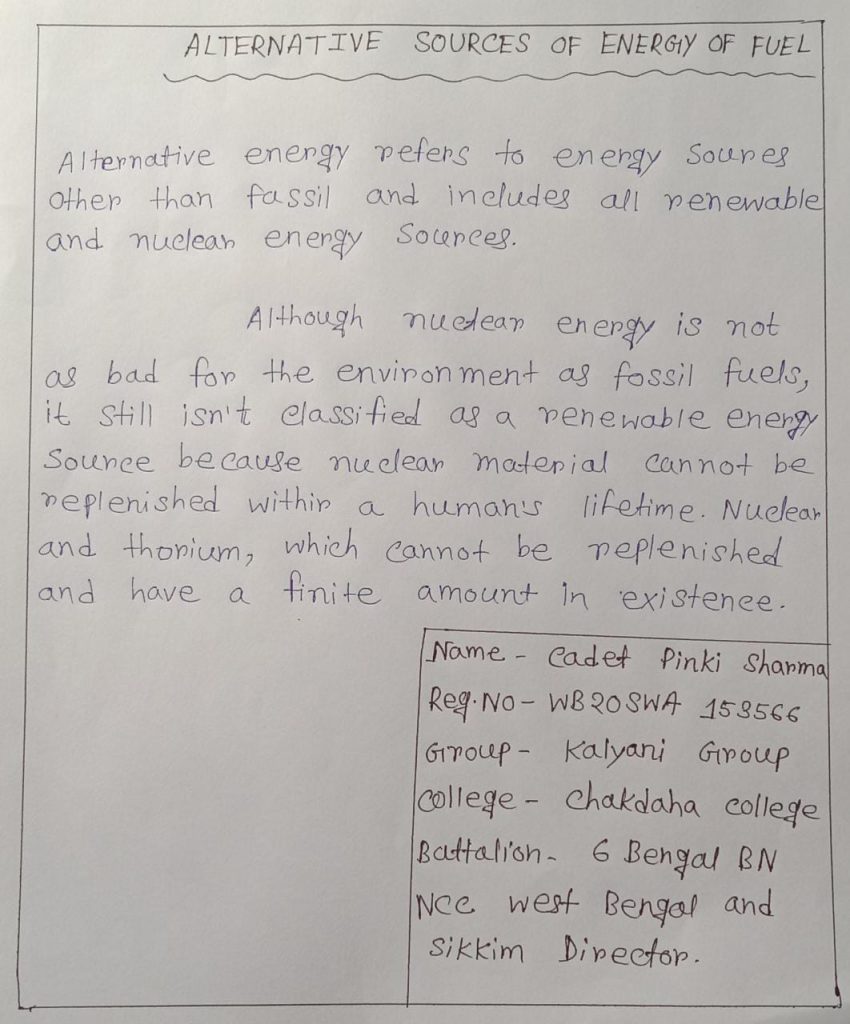 ALTERNATIVE SOURCES OF ENERGY OF FUEL
Alternative energy refers to energy Soures
other than fassil and includes all renewable
and nuclear energy Sources.
Although nuclear energy is not
as bad for the environment as fossil fuels,
it still isn't classified as a renewable energy
Source because nuclear material cannot be
replenished within a human's lifetime. Nuclear
and thorium, which cannot be replenished
and have a finite amount in existence.
Name - Cadet Pinki Sharma
Reg.No - WB20SWA 153566
Group - Kalyani Group
College - Chakdaha college
Battalion - 6 Bengal BN
NCC west Bengal and
Sikkim Director.